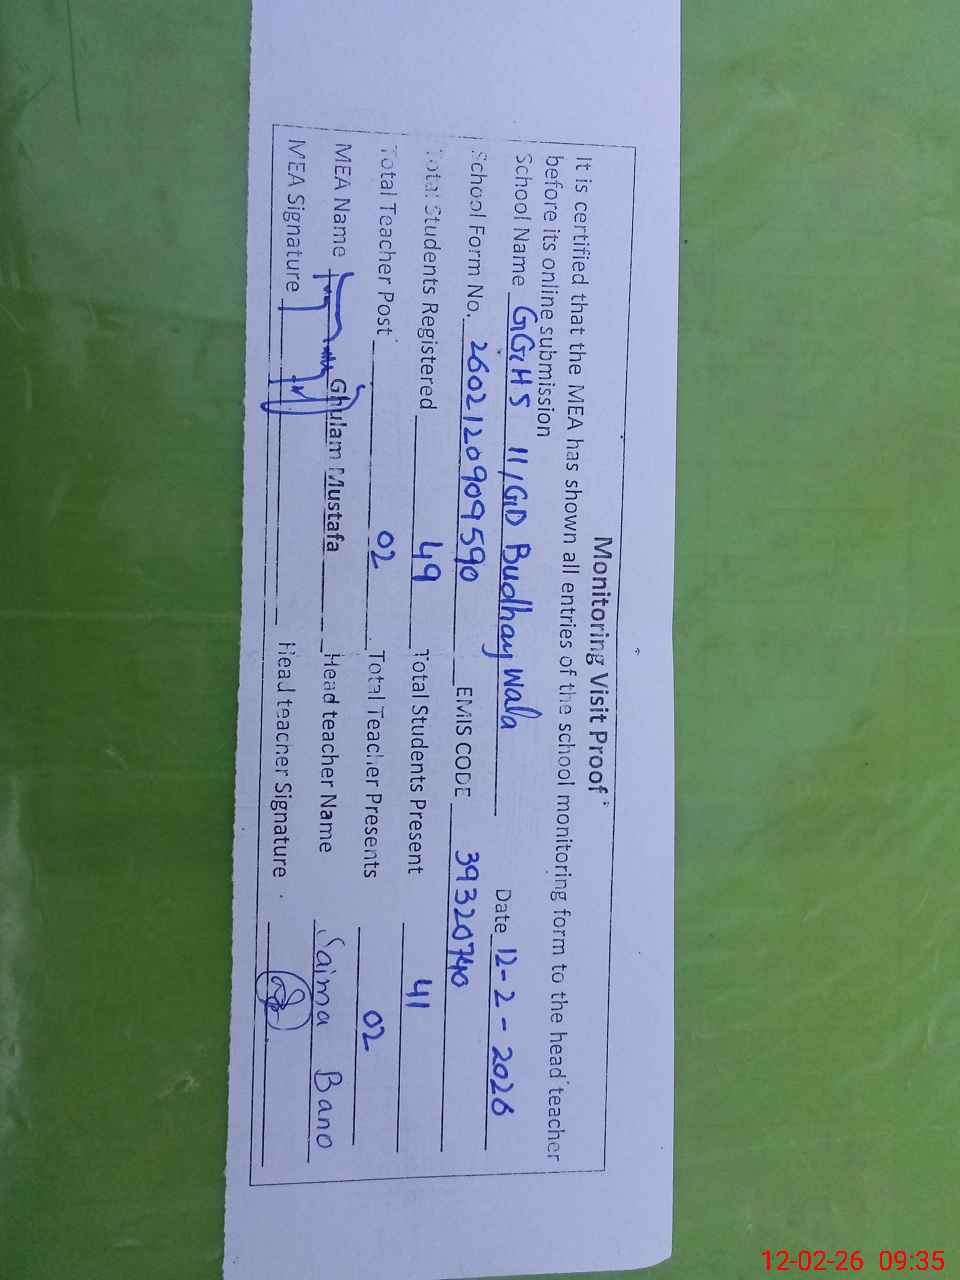 Monitoring Visit Proof
It is certified that the MEA has shown all entries of the school monitoring form to the head teacher
before its online submission
School Name GGHS 11/GD Budhay Wala Date 12-2-2026
School Form No. 260212090959​0 EMIS CODE 39320740
Total Students Registered 49 Total Students Present 41
Total Teacher Post 02 Total Teacher Presents 02
MEA Name Ghulam Mustafa Head teacher Name Saima Bano
MEA Signature Head teacher Signature
12-02-26 09:35